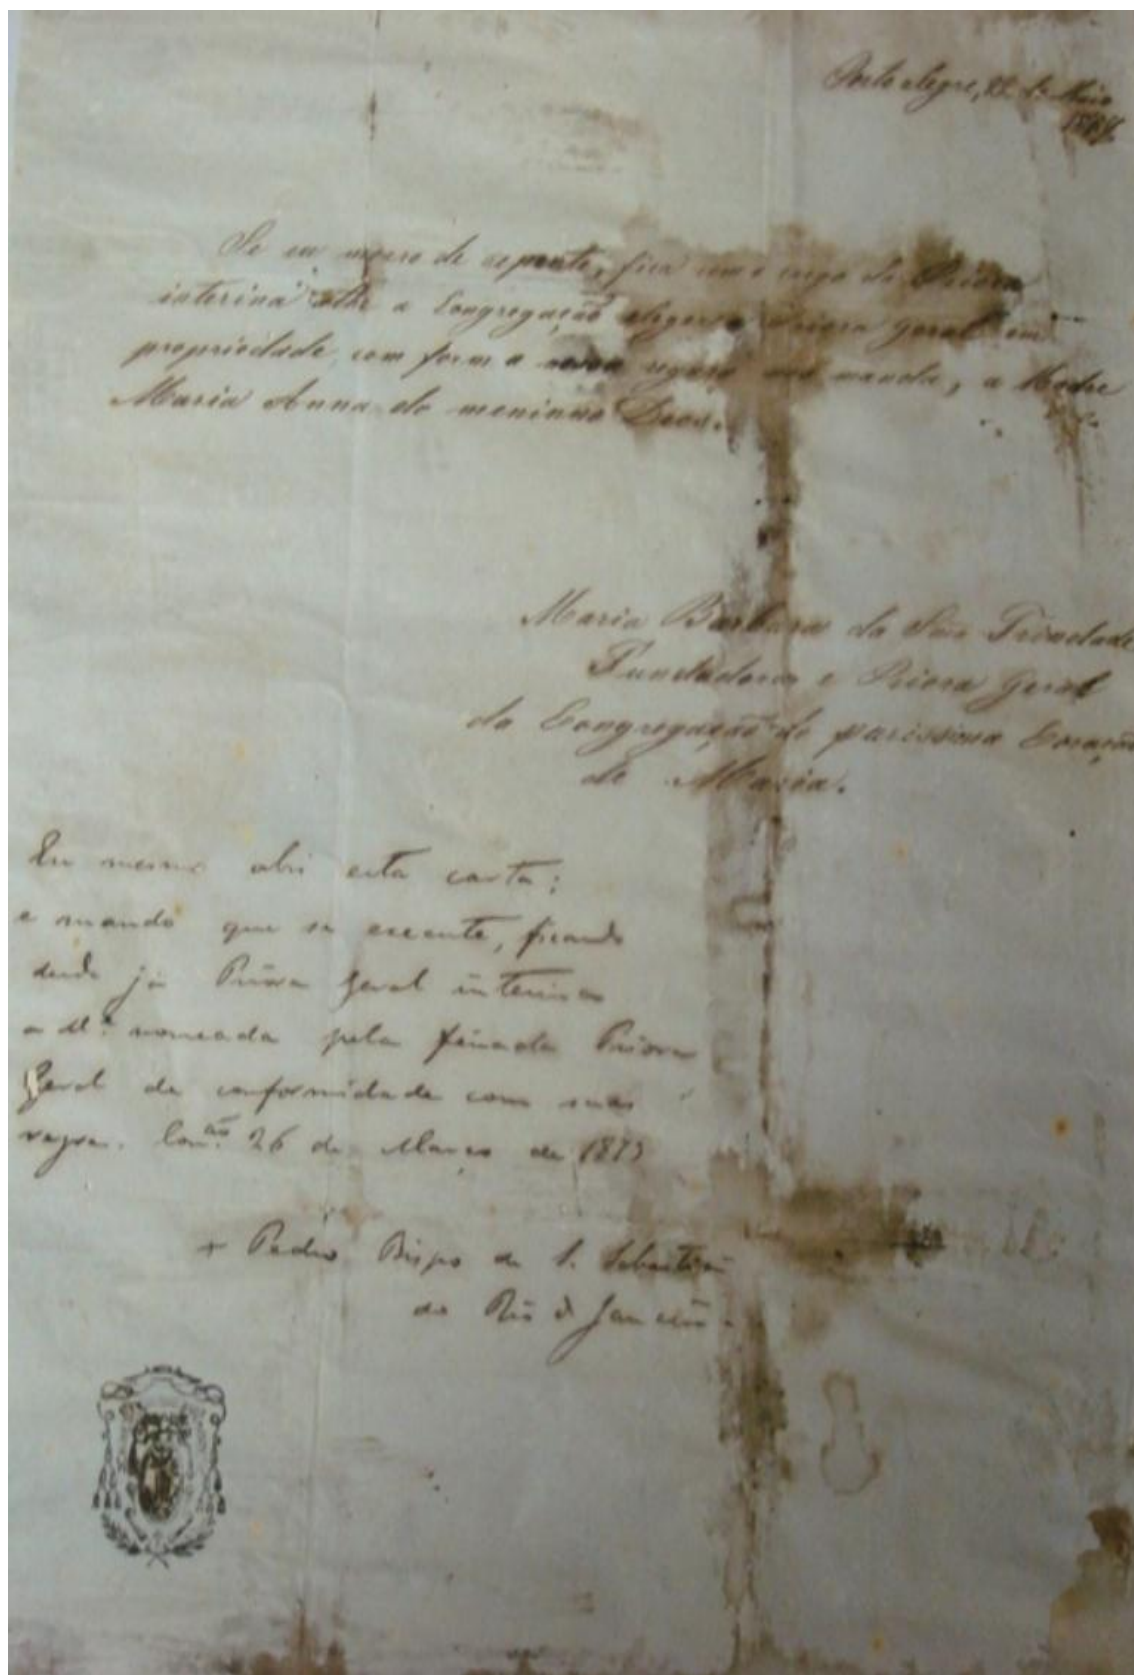 Porto Alegre, de Maio
Se eu morro de repente, fica com o cargo de Priora
interina athe a Congregação eleger Priora geral em
propriedade, com form a nossa regra nos manda, a Madre
Maria Anna do meninno Deos.
Maria Barbara da Sma Trindade
Fundadora e Priora Geral
da Congregação do purissimo Coração
de Maria.
Eu mesmo abri esta carta;
e mando que se execute, ficando
desde já Priora Geral interina
a M.e nomeada pela finada Priora
Geral de conformidade com suas
regra. 26 de Março de 1873
+ Pedro Bispo de S. Sebastião
do Rio de Janeiro.